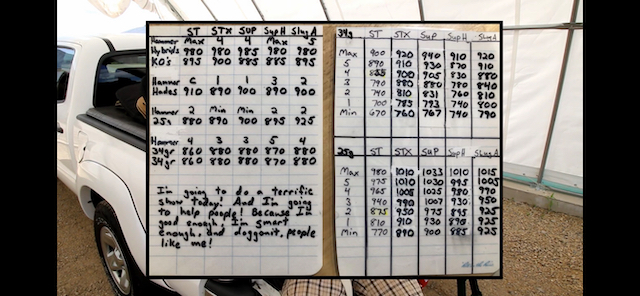 ST STX SUP SupH SlugA
Hammer Max 4 4 Max 5
Hybrids 980 980 985 980 980
KO's 895 900 885 885 895
Hammer C 1 1 3 2
Hades 910 890 900 890 900
Hammer 2 Min Min 2 2
25s 880 890 900 895 925
Hammer 4 3 3 5 4
34gr 860 880 880 870 880
34gr 860 880 880 870 880
I'm going to do a terrific
show today! And I'm going
to help people! Because I'm
good enough, I'm smart
enough, and doggonit, people
like me!
34g ST STX SUP SupH SlugA
Max 900 920 940 910 920
5 890 910 930 870 910
4 855 900 905 830 880
3 790 880 880 780 840
2 740 810 831 760 810
1 700 785 793 740 800
Min 670 760 767 740 790
25g ST STX SUP SupH SlugA
Max 980 1010 1033 1010 1015
5 975 1010 1030 995 1005
4 965 1005 1025 980 970
3 940 990 1007 930 950
2 875 950 975 895 925
1 810 910 930 890 925
Min 770 890 900 885 925